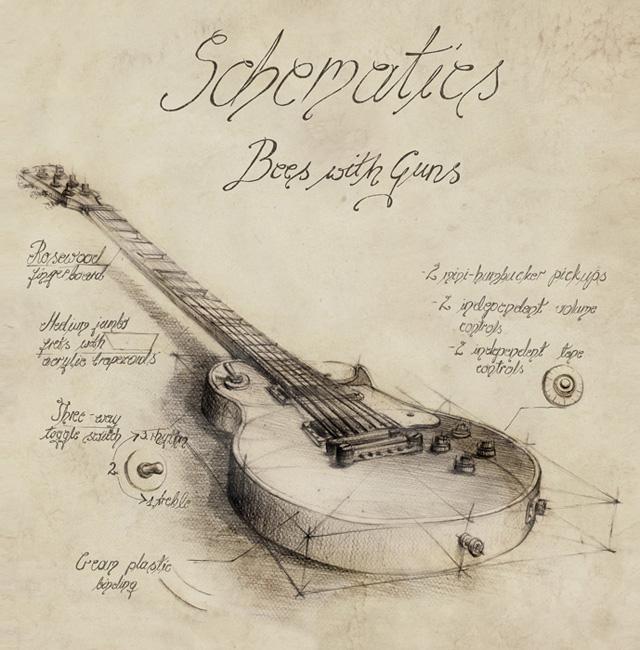 Schematics
Bees with Guns
Rosewood
fingerboard
Medium jumbo
frets with
acrylic trapezoids
Three-way
toggle switch
3. rhythm
2.
1. treble
Cream plastic
binding
-2 mini-humbucker pickups
-2 independent volume
controls
-2 independent tone
controls